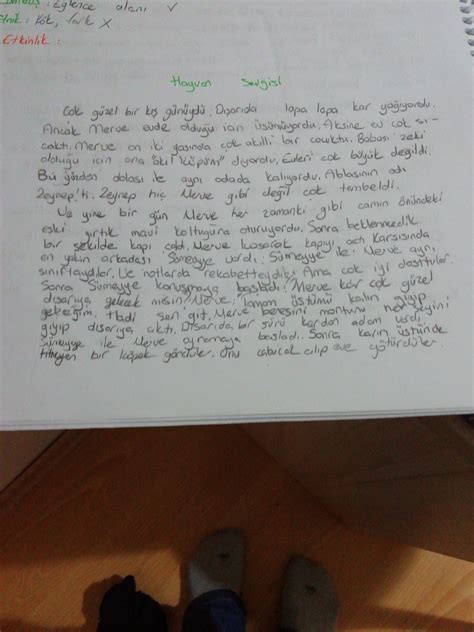 : Eğlence alanı ✓
: Kök, fark X
Etkinlik :
Hayvan Sevgisi
Çok güzel bir kış günüydü. Dışarıda lapa lapa kar yağıyordu.
Ancak Merve evde olduğu için üşümüyordu. Aksine evi çok sı-
caktı. Merve on iki yaşında çok akıllı bir çocuktu. Babası zeki
olduğu için ona "akıl küpüm" diyordu. Evleri çok büyük değildi.
Bu yüzden ablası ile aynı odada kalıyordu. Ablasının adı
Zeynep'ti. Zeynep hiç Merve gibi değil çok tembeldi.
Ve yine bir gün Merve her zamanki gibi camın önündeki
eski yırtık mavi koltuğuna oturuyordu. Sonra beklenmedik
bir şekilde kapı çaldı. Merve koşarak kapıyı açtı. Karşısında
en yakın arkadaşı Sümeyye vardı. Sümeyye ile Merve aynı
sınıftaydılar. Ve notlarda rekabetteydi. Ama çok iyi dosttular.
Sonra Sümeyye konuşmaya başladı: Merve kar çok güzel
dışarıya gelecek misin? Merve, tamam üstümü kalın giyip
geleceğim. Hadi sen git. Merve beresini montunu her şeyini
giyip dışarıya çıktı. Dışarıda bir sürü kardan adam vardı.
Sümeyye ile Merve oynamaya başladı. Sonra karın üstünde
titreyen bir köpek gördüler. Onu çabucak alıp eve götürdüler.